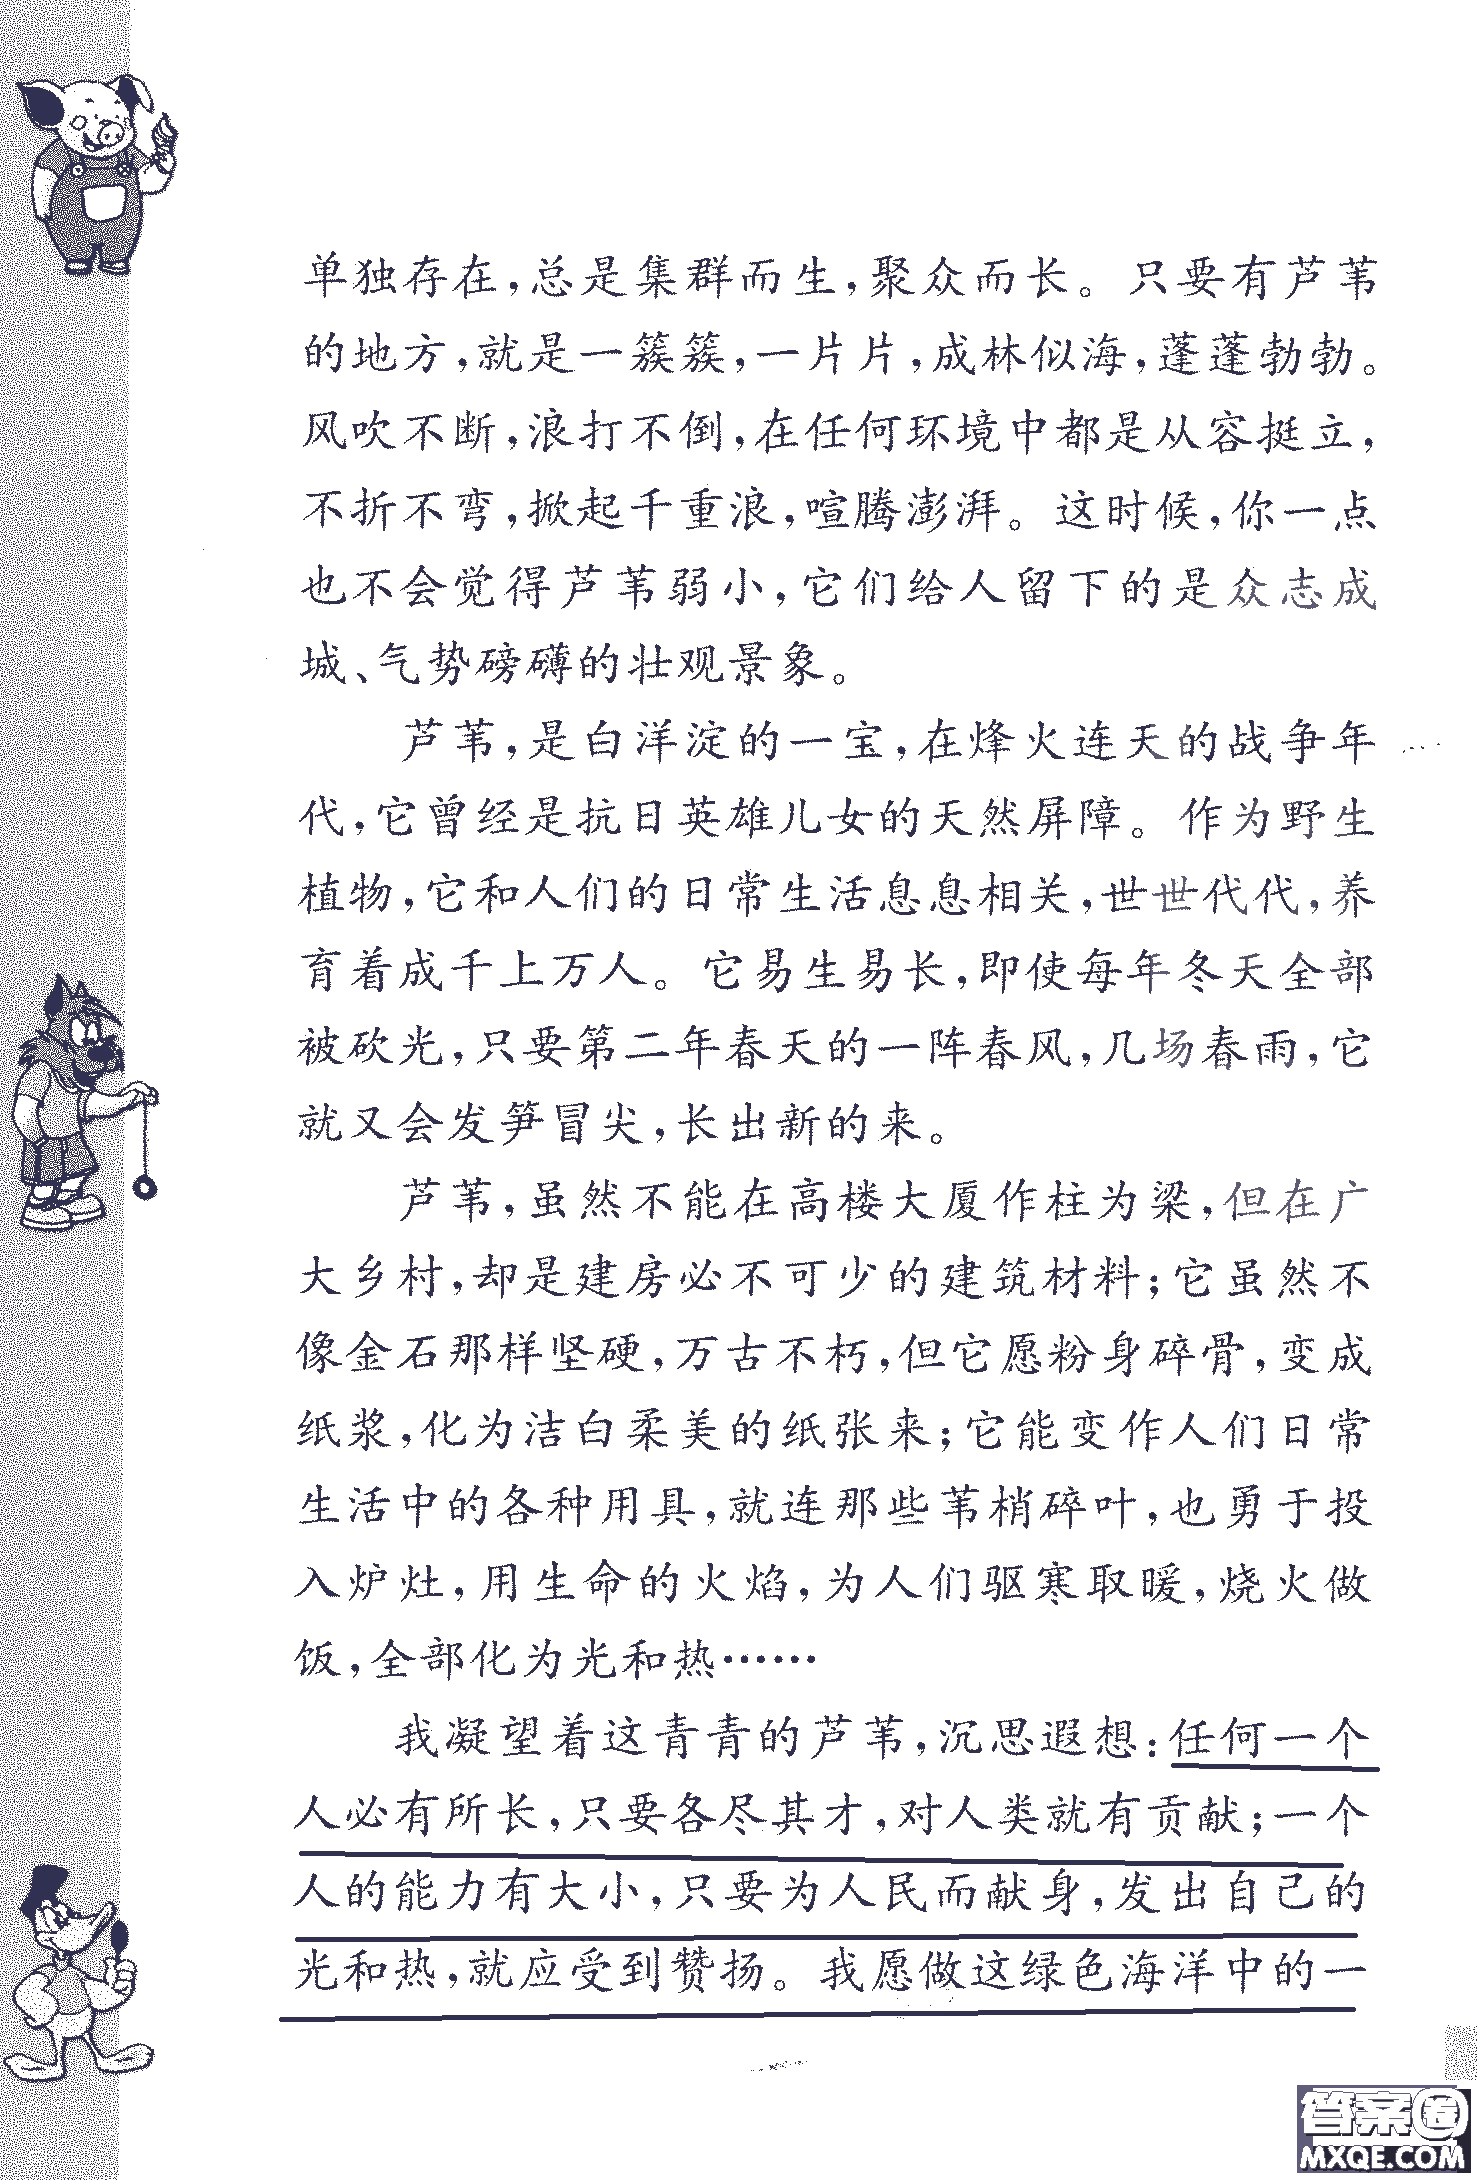 单独存在,总是集群而生,聚众而长。只要有芦苇
的地方,就是一簇簇,一片片,成林似海,蓬蓬勃勃。
风吹不断,浪打不倒,在任何环境中都是从容挺立,
不折不弯,掀起千重浪,喧腾澎湃。这时候,你一点
也不会觉得芦苇弱小,它们给人留下的是众志成
城、气势磅礴的壮观景象。
芦苇,是白洋淀的一宝,在烽火连天的战争年
代,它曾经是抗日英雄儿女的天然屏障。作为野生
植物,它和人们的日常生活息息相关,世世代代,养
育着成千上万人。它易生易长,即使每年冬天全部
被砍光,只要第二年春天的一阵春风,几场春雨,它
就又会发笋冒尖,长出新的来。
芦苇,虽然不能在高楼大厦作柱为梁,但在广
大乡村,却是建房必不可少的建筑材料;它虽然不
像金石那样坚硬,万古不朽,但它愿粉身碎骨,变成
纸浆,化为洁白柔美的纸张来;它能变作人们日常
生活中的各种用具,就连那些苇梢碎叶,也勇于投
入炉灶,用生命的火焰,为人们驱寒取暖,烧火做
饭,全部化为光和热……
我凝望着这青青的芦苇,沉思遐想:任何一个
人必有所长,只要各尽其才,对人类就有贡献;一个
人的能力有大小,只要为人民而献身,发出自己的
光和热,就应受到赞扬。我愿做这绿色海洋中的一
答案圈
MXQE.COM